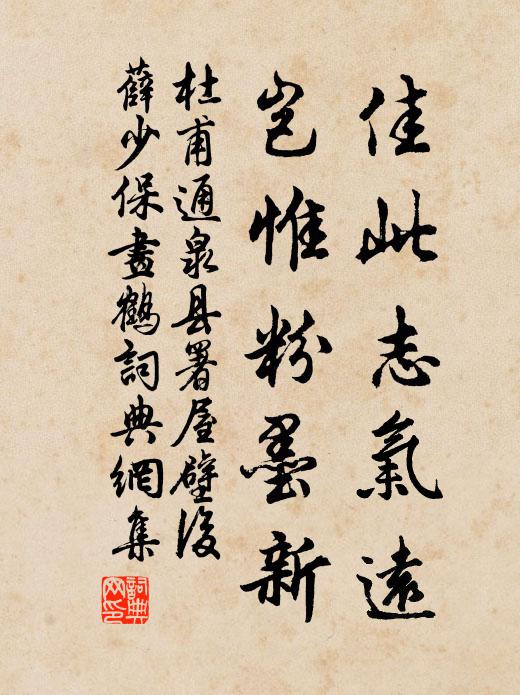 佳此志氣遠
豈惟粉墨新
杜甫通泉县署屋壁後
薛少保畫鶴詞典網集
詞典網印